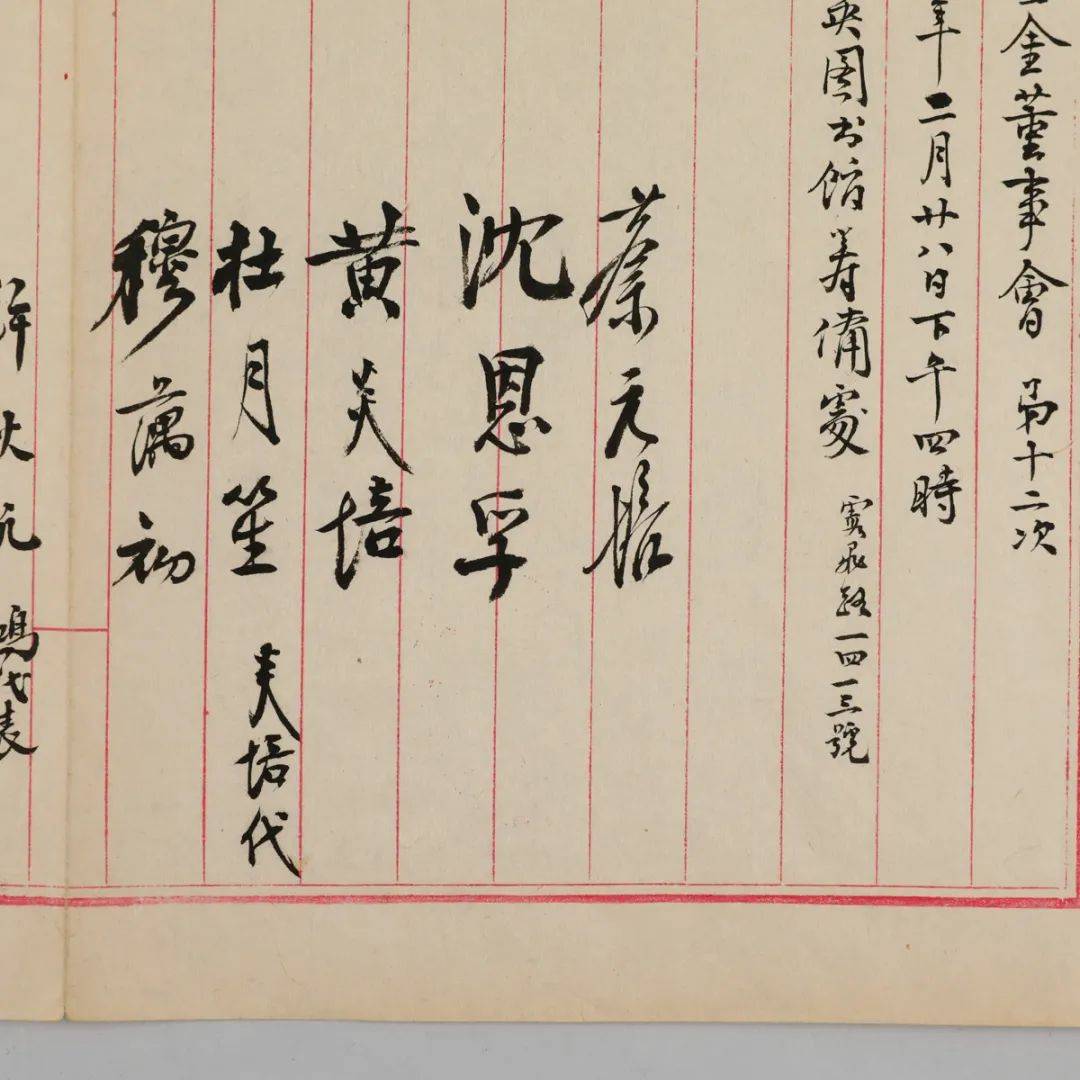 金董事會 第十二次
年二月廿八日下午四時
央图书馆筹備處 霞飛路一四三號
蔡元培
沈恩孚
黄炎培
杜月笙 炎培代
穆藕初
許秋 代表